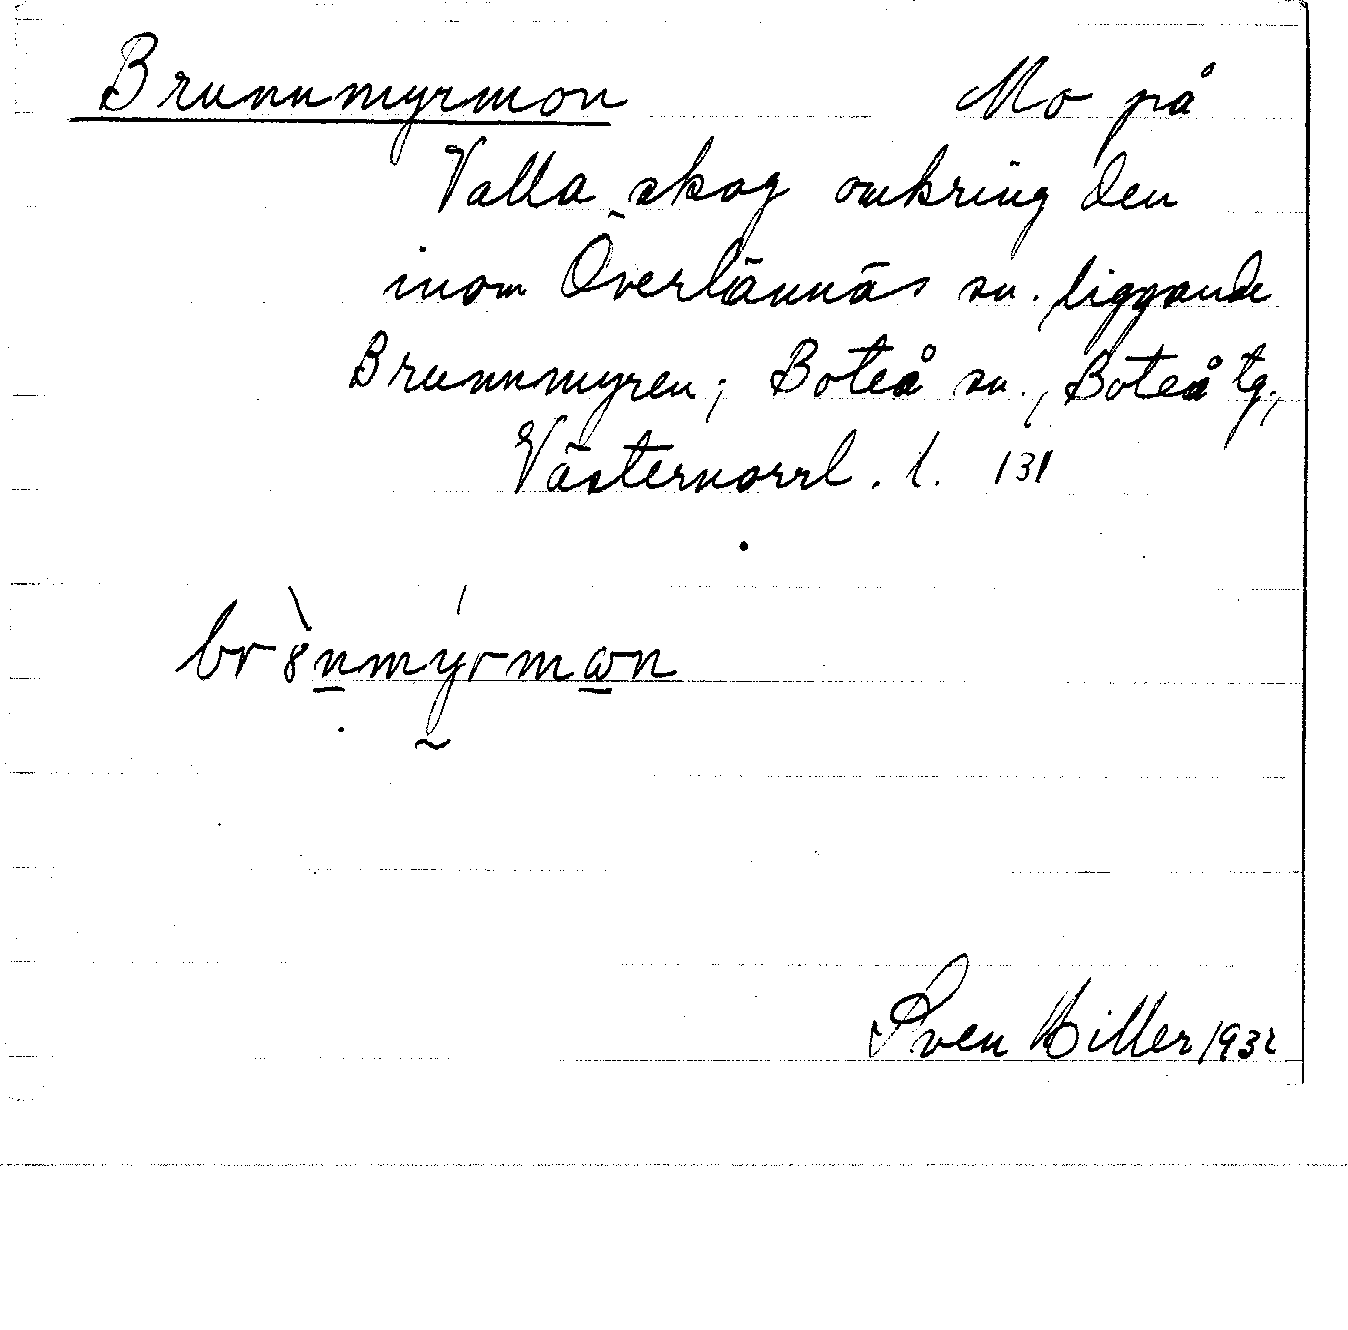 Brunnmyrmon Mo på
Valla skog omkring den
inom Överlännäs sn. liggande
Brunnmyren; Boteå sn., Boteå tg,
Västernorrl. l. 131
br8̀nmýrmωn
Sven Hiller 1932